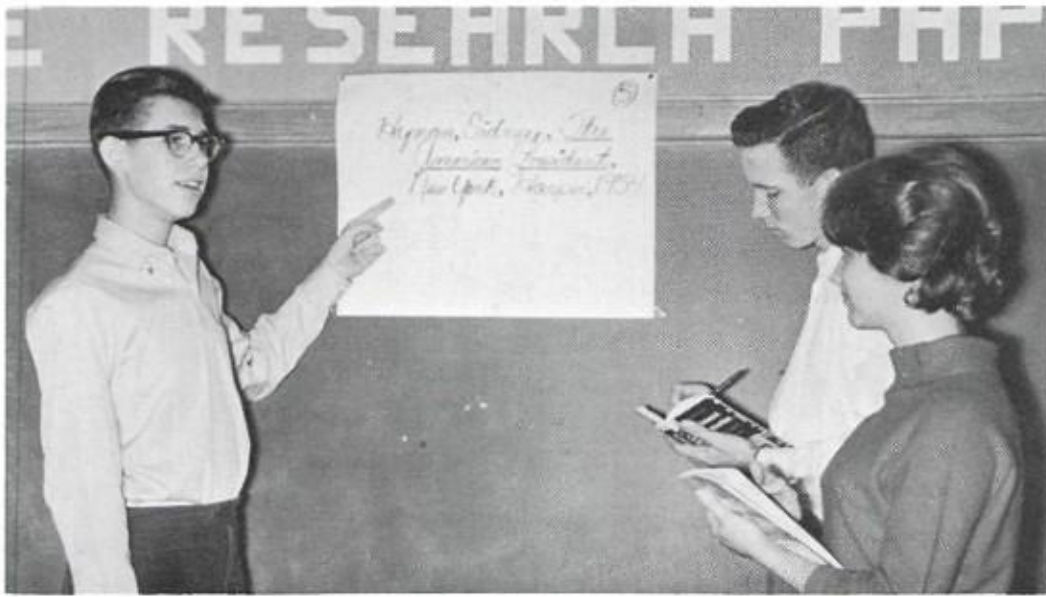 E RESEARCH PAP
5
Hyman, Sidney. The
American President.
New York, Harper, 1954